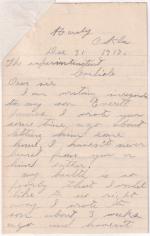 Hardy
Okla
Dec 31 1912.
The superintendent
Carlisle
Dear sir.
I am writing in regards
to my son Everett
I wrote you
some time ago about
letting him come
home, I haven't never
heard from you or
him either.
my health is so
poorly that I would
like to see right
away. I wrote to the
son about 3 weeks
ago and havent